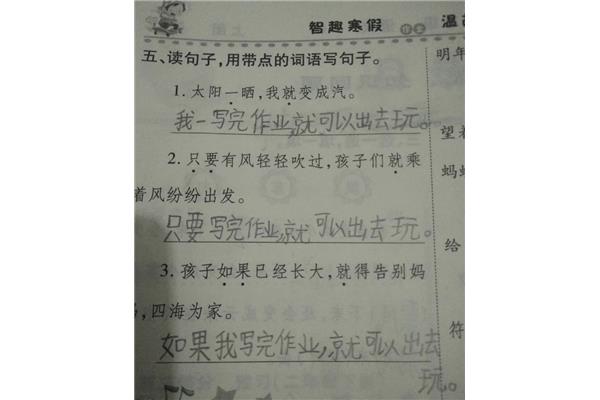 智趣寒假 作业 温
五、读句子，用带点的词语写句子。
明年
1. 太阳一晒，我就变成汽。
我一写完作业，就可以出去玩。
望着
2. 只要有风轻轻吹过，孩子们就乘
蚂
着风纷纷出发。
只要写完作业，就可以出去玩。
给
3. 孩子如果已经长大，就得告别妈
，四海为家。
符
如果我写完作业，就可以出去
玩。